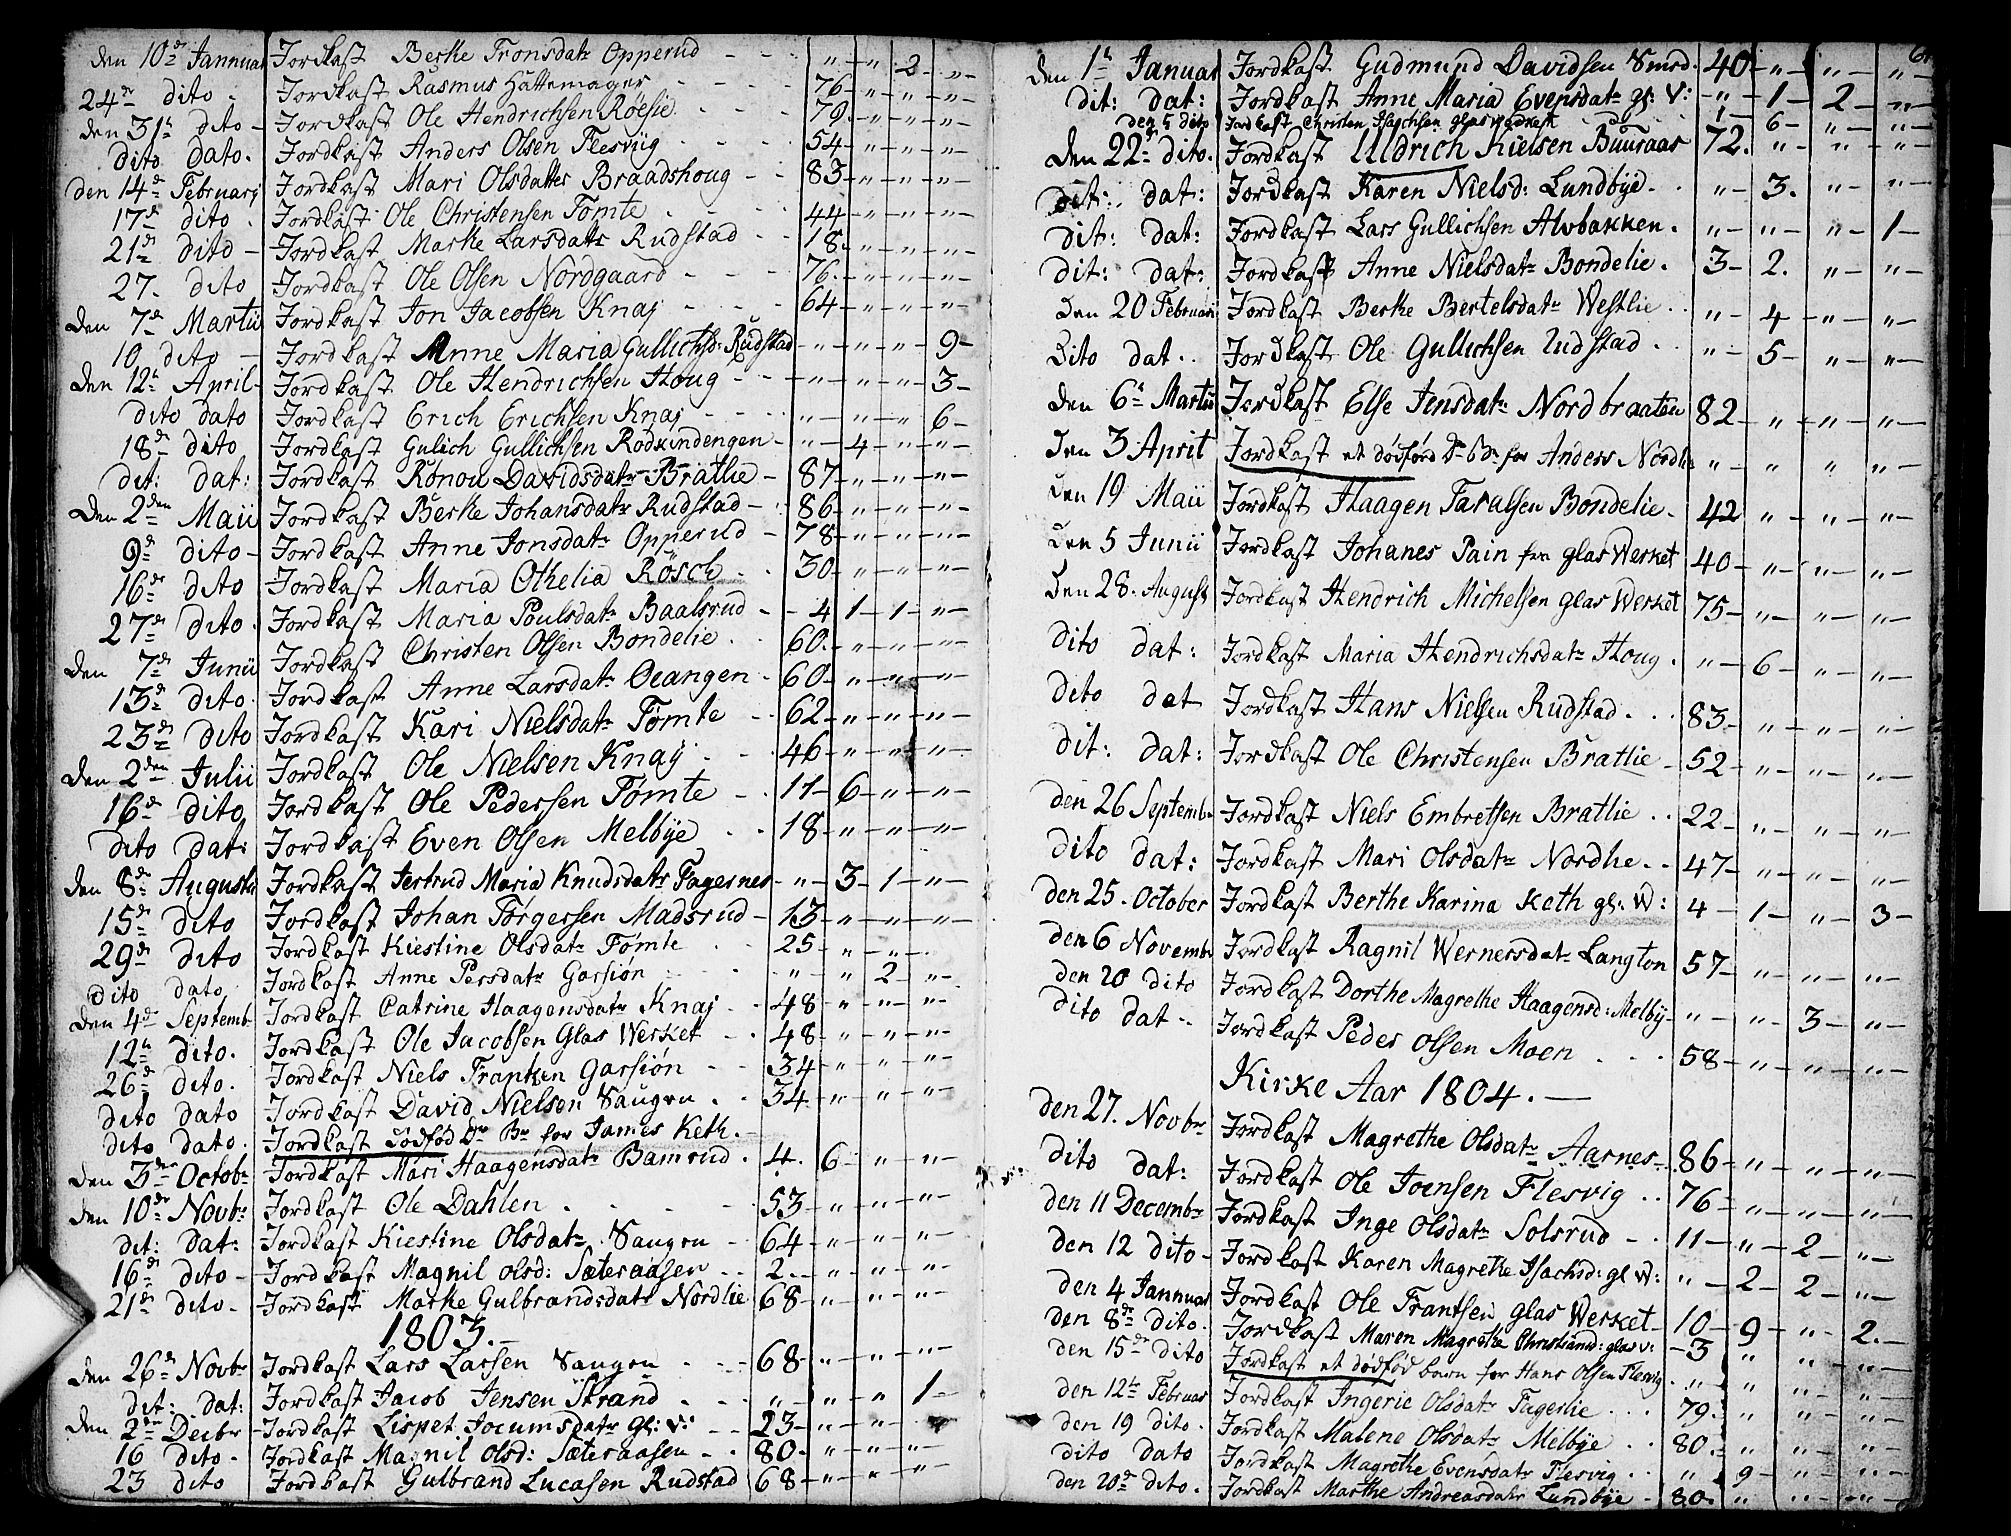 den 10de Jannuar Jordkast Berke Tronsdatr Opperud - - - " - " - 2 - " -
24de dito - Jordkast Rasmus Hattemager - - 76 - " - " - " -
den 31te dito - Jordkast Ole Hendrichsen Röesie - - 79 - " - " - " -
dito dato - Jordkast Anders Olsen Flesvüg - - - 54 - " - " - " -
den 14de Februarj Jordkast Mari Olsdatter Braadshoug - - 83 - " - " - " -
17de dito - Jordkast Ole Christensen Tömte - - - 44 - " - " - " -
21de dito - Jordkast Marke Larsdatr Rudstad - - 18 - " - " - " -
27. dito Jordkast Ole Olsen Nordgaard - - - 76 - " - " - " -
den 7de Martii Jordkast Jon Jacobsen Knaj - - - 64 - " - " - " -
10 dito - Jordkast Anne Maria Gullichsd: Rudstad - " - " - " - 9 -
den 12te April - Jordkast Ole Hendrichsen Houg - - - " - " - " - 3 -
dito dato Jordkast Erich Erichsen Knaj - - - " - " - " 6 -
18de dito Jordkast Gulich Gullichsen Rodkindengen - " - 4 - " - " -
dit: dat: Jordkast Rönou Davidsdatr Bratlie - 87 - " - " - " -
den 2den Maii Jordkast Berke Johansdatr Rudstad - 86 - " - " - " -
9de dito - Jordkast Anne Jonsdatr Opperud - 78 - " - " - " -
16de dito Jordkast Maria Othelia Rösch - - 30 - " - " - " -
27de dito - Jordkast Maria Poulsdatr Baalsrud - - 4 1 - 1 - " -
den 7de Junii Jordkast Christen Olsen Bondelie - - 60 - " - " - " -
13de dito - Jordkast Anne Larsdatr Oeangen - 60 - " - " - " -
23de dito Jordkast Kari Nielsdatr Tömte - - 62 - " - " - " -
den 2den Julii Jordkast Ole Nielsen Knaj - - - 46 - " - " - " -
16de dito Jordkast Ole Pedersen Tömte - - 11 - 6 - " - " -
dito dat: Jordkast Even Olsen Melbÿe - - 18 - " - " - " -
den 8de Augusti Jordkast Jertrud Maria Knudsdatr Fagernes - " - 3 - 1 - " -
15de dito Jordkast Johan Törgersen Madsrud - 13 - " - " - " -
29de dito Jordkast Kiestine Olsdatr Tömte - 25 - " - " -
dito dato Jordkast Anne Persdatr Garsiön - - - " - " 2 - " -
den 4de Septemb Jordkast Catrine Haagensdatr Knaj - 48 - " - " - " -
12te dito. Jordkast Ole Jacobsen Glas Werket - - 48 - " - " - " -
26de dito. Jordkast Niels Franken Garsiön - - 34 - " - " - " -
dito dato Jordkast David Nielsen Saugen - - 34 - " - " - " -
dito dato. Jordkast dödföd Dr Br for James Keth. -
den 3de Octobr Jordkast Mari Haagensdatr Bamrud - 4. 6 - " - " -
den 10de Novbr Jordkast Ole Dahlen - - - - 53 - " - " - " -
dit: dat: Jordkast Kiestine Olsdatr Saugen - 64 - " - " - " -
16de dito - Jordkast Magnil Olsd: Sæteraasen - - 2 - - " - " - " -
21de dito - Jordkast Marke Gulbrandsdatr Nordlie 68 - " - " - " -
1803. -
den 26de Novbr Jordkast Lars Larsen Saugen - - - 68 - " - " - " -
dit: dat: Jordkast Jacob Jensen Strand - - - " - " - " 1 -
den 2den Decbr - Jordkast Lispet Jocumsdatr Gl: V: - - 23 - " - " - " -
16 dito - Jordkast Magnil Olsd: Sæteraasen - - 80 - " - " - " -
23 dito Jordkast Gulbrand Lucasen Rudstad 68 - " - " - " -
den 1te Januar Jordkast Gudmund Davidsen Smed - 40 - " - " - " -
dit: dat: Jordkast Anne Maria Evensdatr gl: V: - " - 1 - 2 - " -
den 5 dito Jordkast Christen Isachsen glasværket - 1 - 6 - " - " -
den 22de dito. Jordkast Uldrich Nielsen Buuraas 72. - " - " - " -
dit: dat: Jordkast Karen Nielsd: Lundbÿe - - " - 3. - " - " -
dit: dat: Jordkast Lars Gullichsen Alvbakken. " - " - " - 1 -
dit: dat: Jordkast Anne Nielsdatr Bondelie. 3 - 2. " - " -
den 20 Februari Jordkast Berke Bertelsdatr Westlie - - " - 4 - " - " -
Dito dat. - Jordkast Ole Gullichsen Rudstad - - " - 5 - " - " -
den 6te Martii Jordkast Else Jensdatr Nordbraaten 82 - " - " - " -
den 3 April Jordkast et dödföd D-Bn for Anders Nordlie " - " " - " -
den 19 Maii Jordkast Haagen Taralsen Bondelie. 42 " - " - " -
den 5 Junii Jordkast Johanes Pain fra glas Werket 40 - " - " - " -
den 28. August Jordkast Hendrich Michelsen glas Werket 75 - " - " - " -
dito dat: Jordkast Maria Hendrichsdatr Houg. " - 6 - " - " -
dito dat Jordkast Hans Nielsen Rudstad - - - 83 - " - " - " -
dit: dat: Jordkast Ole Christensen Bratlie - 52 - " - " - " -
den 26 Septembr Jordkast Niels Embretsen Bratlie - - 22 - " - " - " -
dito dat: Jordkast Mari Olsdatr Nordlie - - 47 - " - " - " -
den 25. October Jordkast Berthe Karina Keth gl: W: 4 - 1 - " - 3 -
den 6 Novembr Jordkast Ragnil Wernersdatr Langton 57 - " - " - " -
den 20 dito Jordkast Dorthe Magrethe Haagensd: Melby - " - " - 3 - " -
dito dat - - Jordkast Peder Olsen Moen - - - 58 - " - " - " -
Kirke Aar 1804. -
den 27. Novbr Jordkast Magrethe Olsdatr Aarnes - 86 - " - " - " -
dito dat: Jordkast Ole Joensen Flesvig - - 76 - " - " - " -
den 11 Decembr Jordkast Inge Olsdatr Solsrud - - 11 - " - 2 - " -
den 12 dito - Jordkast Karen Magrethe Isachsd: gl W: " - 2 - 2 - " -
den 4 Jannuar Jordkast Ole Frantsen glas Werket - 10 - 9 - " - 2. -
den 8de dito. Jordkast Maren Magrethe Christiansd: glas V: - 3 " " - " -
den 15de dito Jordkast et dödföd barn for Hans Olsen Flesvig - " - " " - " -
den 12te Februar Jordkast Ingerie Olsdatr Fagerlie - - - 79. " " - " -
den 19 dito. Jordkast Malene Olsdatr Melbÿe - - 80. - " " - " -
dito dato Jordkast Magrethe Evensdatr Flesvig - - " - 9 - " - " -
den 20de dito. Jordkast Marthe Andreasdatr Lundbÿe - 80. " " - " -